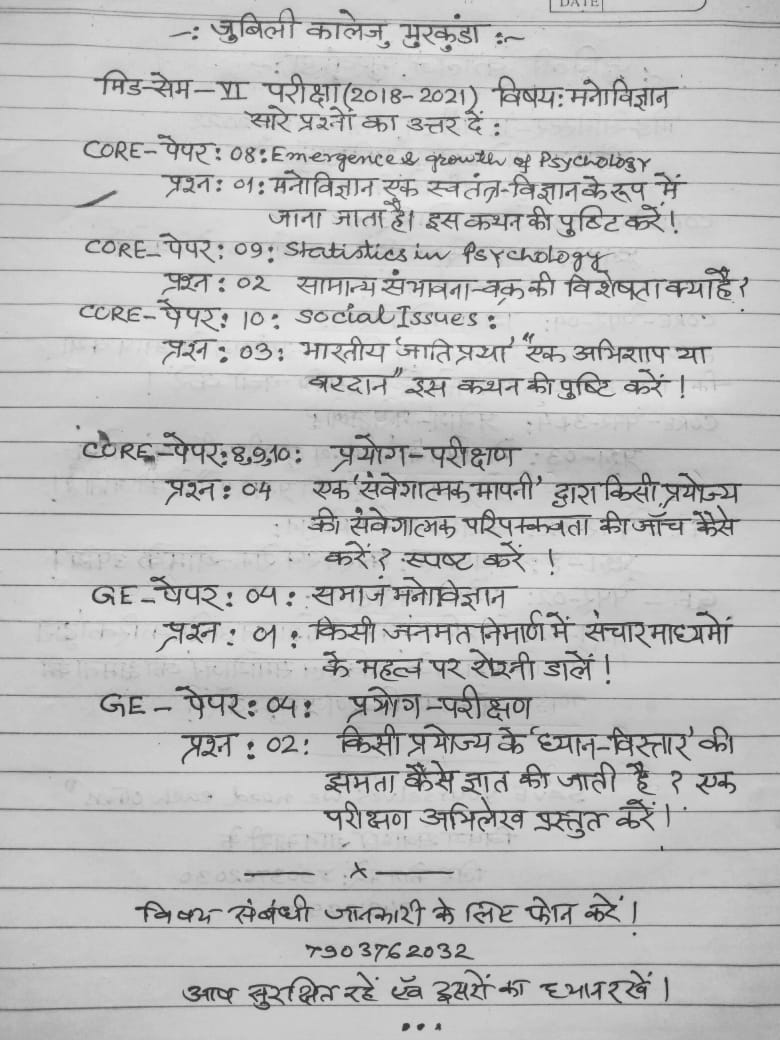 DATE
-: जुबिली कालेज, भुरकुंडा :-
मिड-सेम-VI परीक्षा(2018-2021) विषय: मनोविज्ञान
सारे प्रश्नों का उत्तर दें :
CORE-पेपर: 08: Emergence & growth of Psychology
प्रश्न: 01: मनोविज्ञान एक स्वतंत्र-विज्ञान के रूप में
जाना जाता है। इस कथन की पुष्टि करें!
CORE-पेपर: 09: Statistics in Psychology
प्रश्न: 02 सामान्य संभावना-वक्र की विशेषता क्या है?
CORE-पेपर: 10: Social Issues:
प्रश्न: 03: भारतीय 'जाति प्रथा' "एक अभिशाप या
वरदान" इस कथन की पुष्टि करें!
CORE-पेपर: 8,9,10: प्रयोग-परीक्षण
प्रश्न: 04 एक 'संवेगात्मक मापनी' द्वारा किसी प्रयोज्य
की संवेगात्मक परिपक्कवता की जाँच कैसे
करें? स्पष्ट करें !
GE-पेपर: 04: समाज मनोविज्ञान
प्रश्न: 01: किसी जनमत निर्माण में संचार माध्यमों
के महत्व पर रोश्नी डालें!
GE- पेपर: 04: प्रयोग-परीक्षण
प्रश्न: 02: किसी प्रयोज्य के 'ध्यान-विस्तार' की
क्षमता कैसे ज्ञात की जाती है ? एक
परीक्षण अभिलेख प्रस्तुत करें!
x
विषय संबंधी जानकारी के लिए फोन करें!
7903762032
आप सुरक्षित रहें एवं दुसरों का ध्यान रखें।